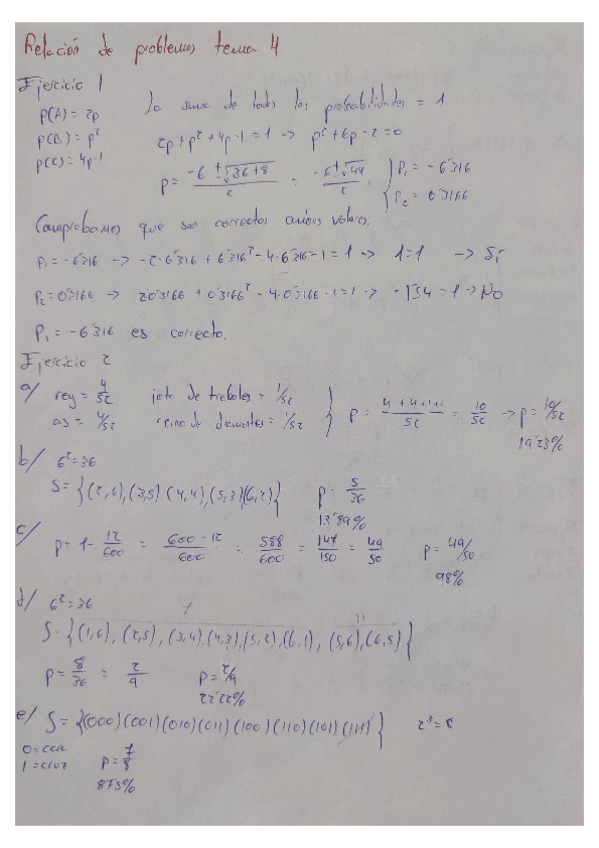 Relación de problemas tema 4
Ejercicio 1
P(A) = 2p La suma de todas las probabilidades = 1
P(B) = p²
P(C) = 4p-1
2p+p²+4p-1=1 -> p²+6p-2=0
p = (-6 ± √(36+8))/2 = (-6 ± √44)/2 { P₁ = -6'316 P₂ = 0'3166
Comprobamos que son correctos ambos valores.
P₁ = -6'316 -> -2·6'316 + 6'316² - 4·6'316 - 1 = 1 -> 1=1 -> Sí
P₂ = 0'3166 -> 2·0'3166 + 0'3166² - 4·0'3166 - 1 = 1 -> -1'54 = 1 -> No
P₁ = -6'316 es correcto.
Ejercicio 2
a/ rey = 4/52 jota de treboles = 1/52
as = 4/52 reina de diamantes = 1/52
} p = (4+4+1+1)/52 = 10/52 -> p = 10/52
19'23%
b/ 6²=36
S = {(2,6),(3,5)(4,4),(5,3)(6,2)} p = 5/36
13'89%
c/ p = 1 - 12/600 = (600-12)/600 = 588/600 = 147/150 = 49/50 p = 49/50
98%
d/ 6²=36
7 11
S = {(1,6),(2,5),(3,4),(4,3),(5,2),(6,1),(5,6),(6,5)}
p = 8/36 = 2/9 p = 2/9
22'22%
e/ S = {(000)(001)(010)(011)(100)(110)(101)(111)} 2³=8
0=cara
1=cruz p = 7/8
87'5%